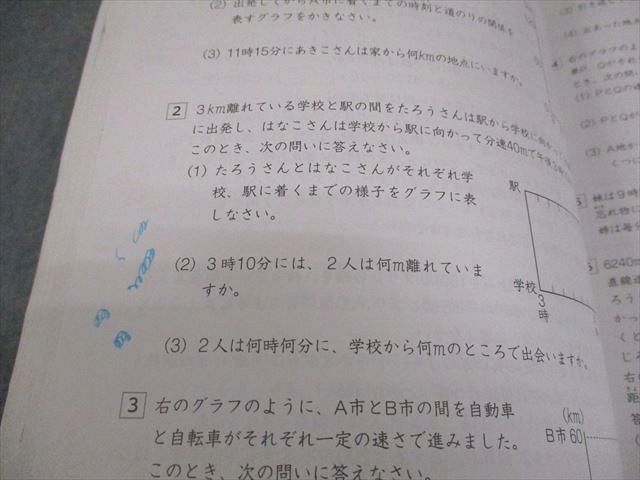 (2) 出発してからA市に着くまでの時刻と道のりの関係を
表すグラフをかきなさい。
(3) 11時15分にあきこさんは家から何kmの地点にいますか。
2 3km離れている学校と駅の間をたろうさんは駅から学校に向かって
に出発し、はなこさんは学校から駅に向かって分速40mで午後3時
このとき、次の問いに答えなさい。
(1) たろうさんとはなこさんがそれぞれ学
校、駅に着くまでの様子をグラフに表
しなさい。
駅
学校
3
時
(2) 3時10分には、2人は何m離れていま
すか。
(3) 2人は何時何分に、学校から何mのところで出会いますか。
3 右のグラフのように、A市とB市の間を自動車
と自転車がそれぞれ一定の速さで進みました。
このとき、次の問いに答えなさい。
(km)
B市 60
右のグラフのよ
とき、次の問
(1) PとQの
(2) PとQが
(3) A地か
くつ
妹は9時
忘れ物に
姉は毎分
6240m
直線道
ろう
かっ
くと
じろ
右の
距
答